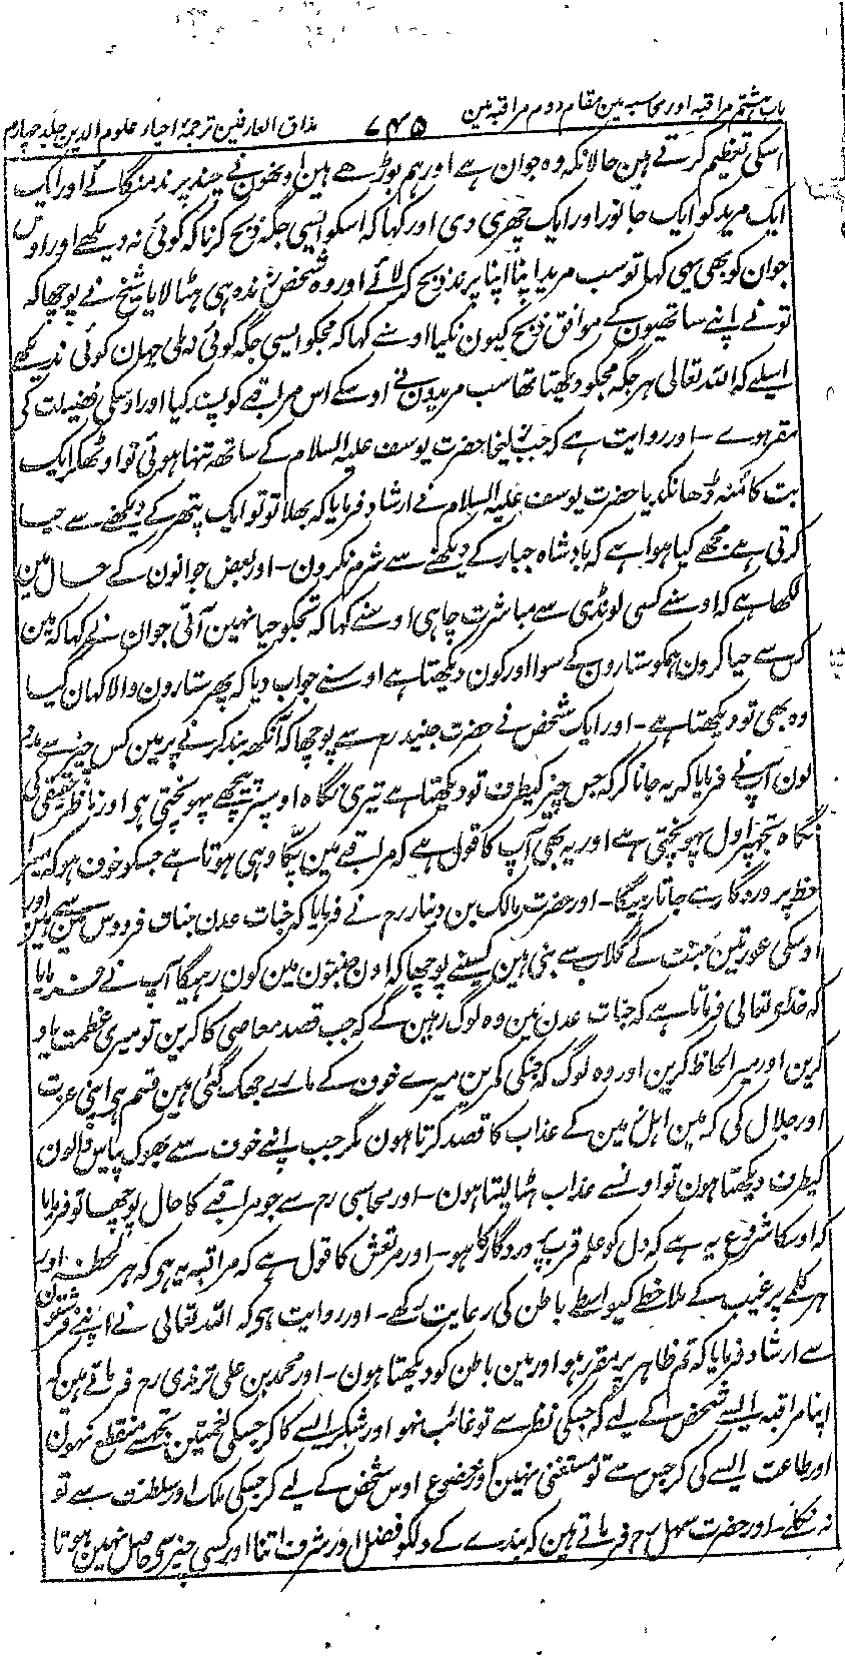 باب ہشتم مراقبہ اور محاسبہ مین مقام دوم مراقبہ مین
۷۴۵
مذاق العارفین ترجمۂ احیاء علوم الدین جلد چہارم
اسکی تعظیم کرتے ہین حالانکہ وہ جوان ہے اور ہم بوڑھے ہین اونھون نے چند پرند منگائے اور ایک
ایک مرید کو ایک جانور اور ایک چھری دی اور کہا کہ اسکو ایسی جگہ ذبح کرنا کہ کوئی نہ دیکھے اور اوس
جوان کو بھی یہی کہا تو سب مرید اپنا اپنا پرند ذبح کر لائے اور وہ شخص زندہ ہی ہٹا لایا شیخ نے پوچھا کہ
تو نے اپنے ساتھیون کے موافق ذبح کیون نکیا اوسنے کہا کہ مجکو ایسی جگہ کوئی نہ ملی جہان کوئی ندیکھے
اسلیے کہ اللہ تعالی ہر جگہ مجکو دیکھتا تھا سب مریدون نے اوسکے اس مراقبے کو پسند کیا اور اوسکی فضیلت کی
مقر ہوے ۔ اور روایت ہے کہ جب زلیخا حضرت یوسف علیہ السلام کے ساتھ تنہا ہوئی تو اوٹھکر ایک
بت کا منہ ڈھانکدیا حضرت یوسف علیہ السلام نے ارشاد فرمایا کہ بھلا تو تو ایک پتھر کے دیکھنے سے حیا
کرتی ہے مجھے کیا ہوا ہے کہ بادشاہ جبار کے دیکھنے سے شرم نکرون ۔ اور بعض جوانون کے حال مین
لکھا ہے کہ اوسنے کسی لونڈی سے مباشرت چاہی اوسنے کہا کہ تجکو حیا نہین آتی جوان نے کہا کہ مین
کس سے حیا کرون ہمکو ستارون کے سوا اور کون دیکھتا ہے اوسنے جواب دیا کہ پھر ستارون والا کہان گیا
وہ بھی تو دیکھتا ہے ۔ اور ایک شخص نے حضرت جنید رم سے پوچھا کہ آنکھ بند کرنے پر مین کس چیز سے مدد
لون آپ نے فرمایا کہ یہ جانا کر کہ جس چیز کیطرف تو دیکھتا ہے تیری نگاہ اوسپر پیچھے پہونچتی ہو اور ناظر حقیقی کی
نگاہ تجھپر اول پہونچتی ہے اور یہ بھی آپ کا قول ہے کہ مراقبے مین پکا وہی ہوتا ہے جسکو خوف ہو کہ میرا
حظ پروردگار سے جاتا رہیگا ۔ اور حضرت مالک بن دینار رم نے فرمایا کہ جنات عدن جنات فردوس مین سے ہین اور
اوسکی عورتین جنت کے گلاب سے بنی ہین کسینے پوچھا کہ اون جنتون مین کون رہیگا آپ نے فرمایا
کہ خدای تعالی فرماتا ہے کہ جنات عدن مین وہ لوگ رہین گے کہ جب قصد معاصی کا کرین تو میری عظمت یاد
کرین اور میرا لحاظ کرین اور وہ لوگ کہ جنکی کمرین میرے خوف کے مارے جھک گئی ہین قسم ہے اپنی عزت
اور جلال کی کہ مین اہل زمین کے عذاب کا قصد کرتا ہون مگر جب اپنے خوف سے بھوک پیاس والون
کیطرف دیکھتا ہون تو اونسے عذاب ہٹا لیتا ہون ۔ اور محاسبی رم سے جو مراقبے کا حال پوچھا تو فرمایا
کہ اوسکا شروع یہ ہے کہ دل کو علم قرب پروردگار کا ہو ۔ اور مرتعش کا قول ہے کہ مراقبہ یہ ہو کہ ہر لحظہ اور
ہر کلمے پر غیب کے ملاحظے کیواسطے باطن کی رعایت رکھے ۔ اور روایت ہو کہ اللہ تعالی نے اپنے فرشتون
سے ارشاد فرمایا کہ تم ظاہر پر مقرر ہو اور مین باطن کو دیکھتا ہون ۔ اور محمد بن علی ترمذی رم فرماتے ہین کہ
اپنا مراقبہ ایسے شخص کے لیے کر جسکی نظر سے تو غائب نہو اور شکر ایسے کا کر جسکی نعمتین تجھسے منقطع نہون
اور طاعت ایسے کی کر جس سے تو مستغنی نہین اور خضوع اوس شخص کے لیے کر جسکی ملک اور سلطنت سے تو
نہ نکلے ۔ اور حضرت سہل رم فرماتے ہین کہ بندے کے دلکو فضل اور شرف اتنا اور کسی چیز سی حاصل نہین ہوتا